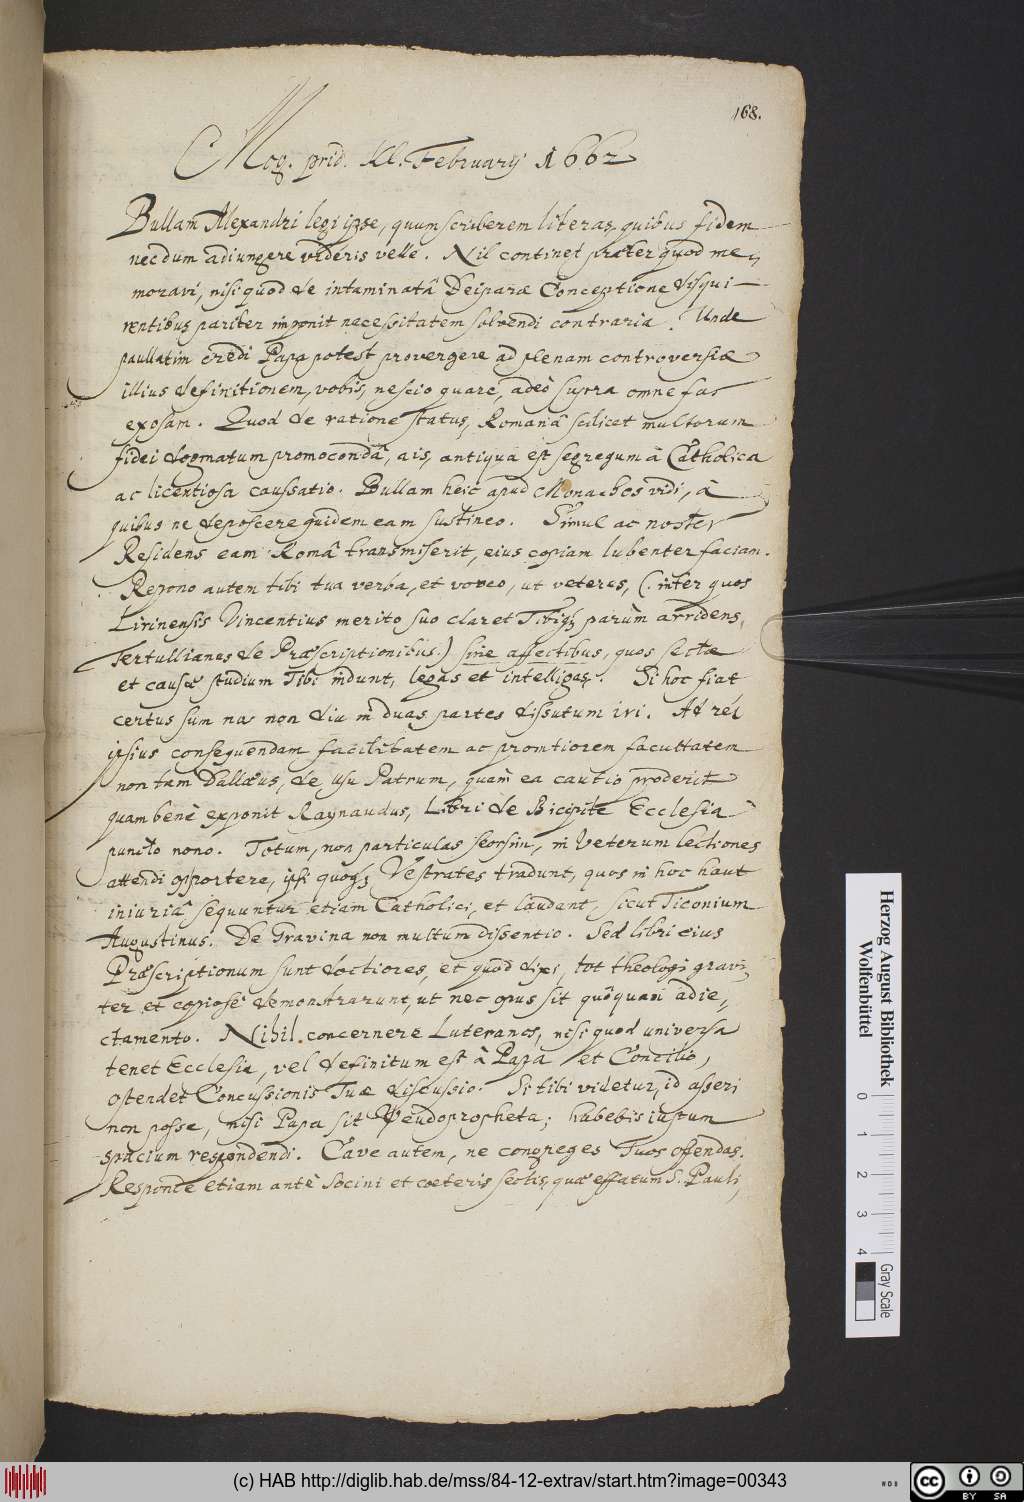 168.
Mog. prid. Kl. Februarij 1662
Bullam Alexandri legi ipse, quum scriberem literas, quibus fidem
necdum adiungere videris velle. Nil continet præter quod me,,
moravi, nisi quod de intaminatâ Deiparæ Conceptione disqui-
rentibus pariter imponit necessitatem solvendi contraria. Unde
paullatim credi Papa potest provergere ad plenam controversiæ
illius definitionem, vobis, nescio quare, adeò supra omne fas
exosam. Quod de ratione status, Romanâ scilicet multorum
fidei dogmatum promocondâ, ais, antiqua est segregum â Catholica
ac licentiosa caussatio. Bullam heic apud Monachos vidi, â
quibus ne deposcere quidem eam sustineo. Simul ac noster
Residens eam Româ transmiserit, eius copiam lubenter faciam.
Repono autem tibi tua verba, et voveo, ut veteres, (inter quos
Lirinensis Vincentius merito suo claret Tibiq; parùm arridens,
Tertullianus de Præscriptionibus.) sine affectibus, quos sectæ
et causæ studium Tibi indunt, legas et intelligas. Si hoc fiat
certus sum nos non diu in duas partes dissutum iri. Ad rei
ipsius consequendam facilitatem ac promtiorem facultatem
non tam Dallæus, de usu Patrum, quam ea cautio proderit
quam benè exponit Raynaudus, Libri de Bicipite Ecclesiâ
puncto nono. Totum, non particulas seorsim, in Veterum lectiones
attendi oportere, ipsi quoq; Vestrates tradunt, quos in hoc haut
iniuriâ sequuntur etiam Catholici, et laudant, sicut Ticonium
Augustinus. De Gravina non multum dissentio. Sed libri eius
Præscriptionum sunt doctiores, et quod dixi, tot theologi gravi,,
ter et copiosè demonstrarunt, ut nec opus sit quoquam adie,,
ctamento. Nihil concernere Luteranos, nisi quod universa
tenet Ecclesia, vel definitum est â Papa et Concilio,
ostendet Concussionis Tuæ discussio. Si tibi videtur, id asseri
non posse, nisi Papa sit Pseudopropheta; habebis iustum
spacium respondendi. Cave autem, ne congreges Tuos offendas.
Responde etiam antè Socini et cæteris sectis, quæ effatum S. Pauli,
Herzog August Bibliothek
Wolfenbüttel
0 1 2 3 4
Gray Scale
(c) HAB http://diglib.hab.de/mss/84-12-extrav/start.htm?image=00343
cc BY SA